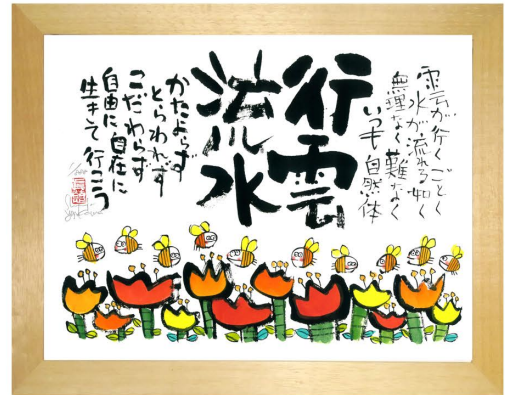 雲が行くごとく
水が流れる如く
無理なく難なく
いつも自然体
行雲
流水
かたよらず
とらわれず
こだわらず
自由に自在に
生きて行こう